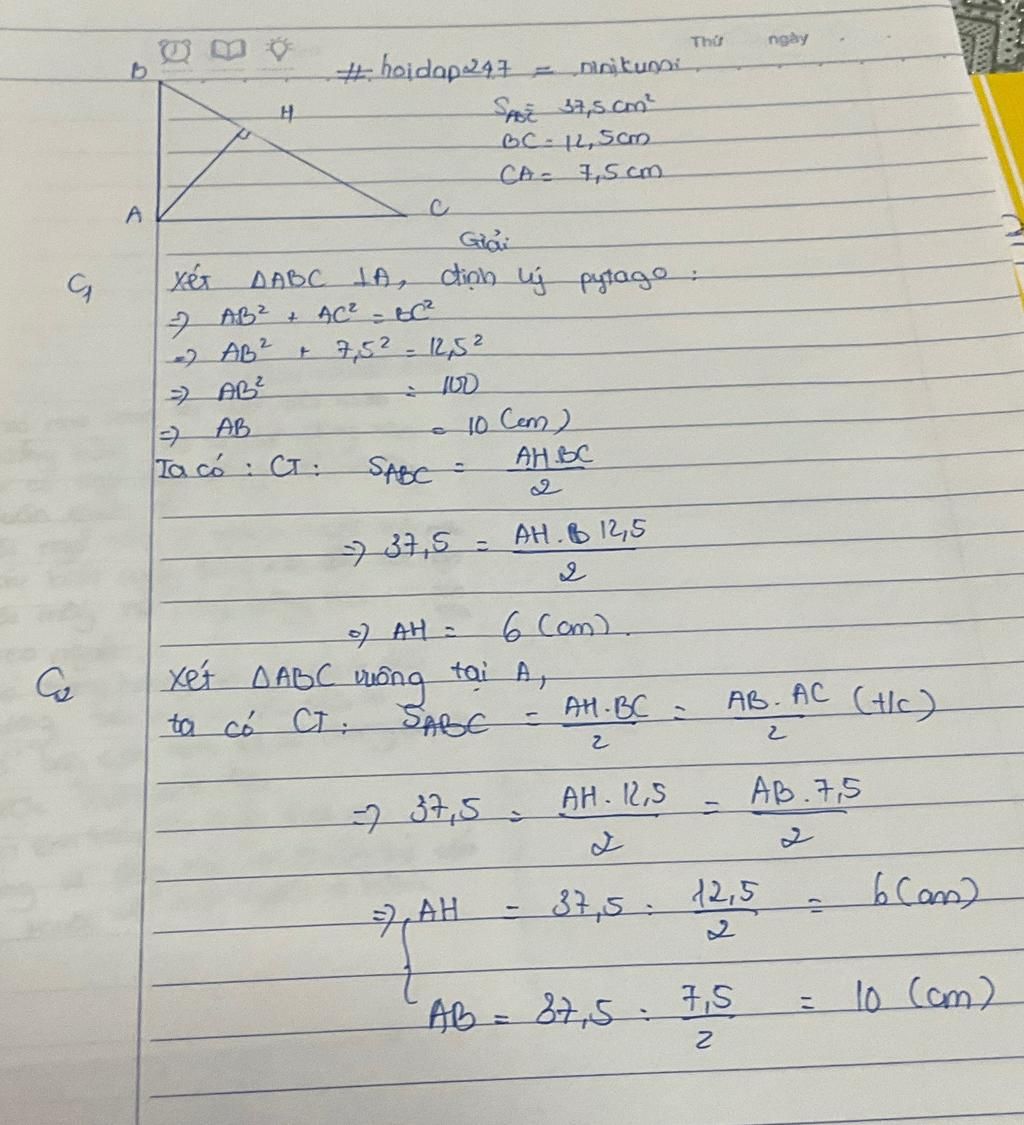 Thứ ngày
B #hoidap247 = ninikunni
H S_ABC = 37,5 cm²
BC = 12,5cm
CA = 7,5 cm
A C
Giải
C₁ Xét ΔABC ⊥A, định lý pytago :
=> AB² + AC² = BC²
=> AB² + 7,5² = 12,5²
=> AB² = 100
=> AB = 10 (cm)
Ta có : CT : S_ABC = AH.BC / 2
=> 37,5 = AH. 12,5 / 2
=> AH = 6 (cm).
C₂ Xét ΔABC vuông tại A,
ta có CT : S_ABC = AH.BC / 2 = AB.AC / 2 (t/c)
=> 37,5 = AH.12,5 / 2 = AB.7,5 / 2
=> { AH = 37,5 : 12,5 / 2 = 6 (cm)
AB = 37,5 : 7,5 / 2 = 10 (cm)